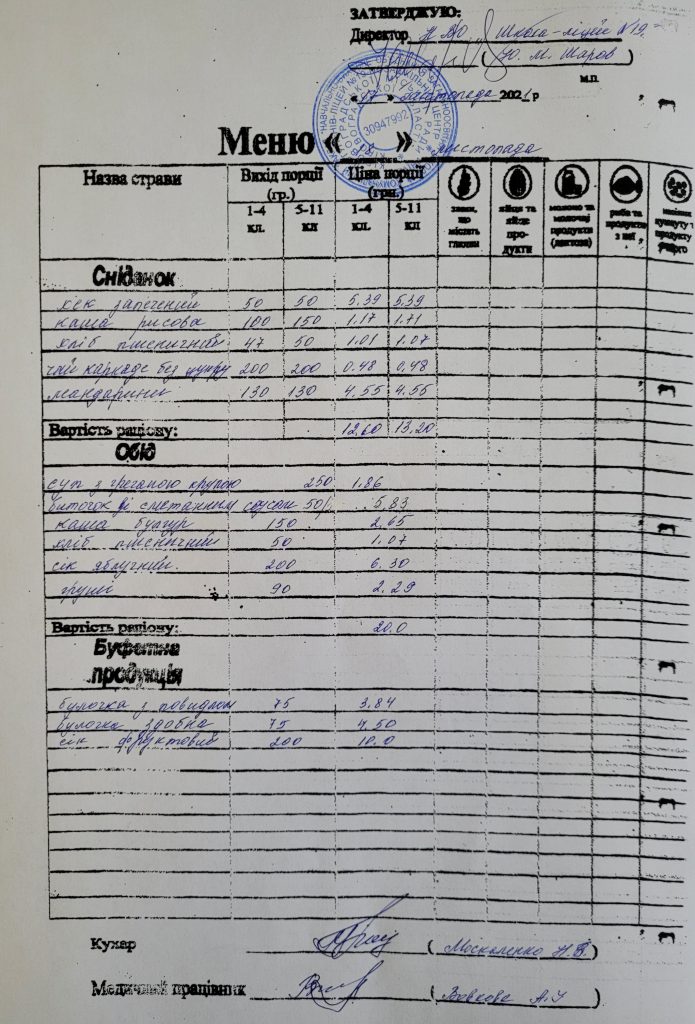 ЗАТВЕРДЖУЮ:
Директор НВО Школа-ліцей №19
(Ю. М. Шаров)
м.п.
«17» листопада 2021 р
30947992
Меню « » листопада
Назва страви Вихід порції (гр.) Ціна порції (грн.)
1-4 кл. 5-11 кл 1-4 кл. 5-11 кл.
злаки, що містять глютен
яйця та яйце продукти
молоко та молочні продукти (лактоза)
риба та продукти з неї
Сніданок
хек запечений 50 50 5.39 5.39
каша рисова 100 150 1.17 1.71
хліб пшеничний 47 50 1.01 1.07
чай каркаде без цукру 200 200 0.48 0.48
мандарини 130 130 4.55 4.55
Вартість раціону: 12.60 13.20
Обід
суп з гречаною крупою 250 1.86
биточок зі сметанним соусом 50/ 5.83
каша булгур 150 2.65
хліб пшеничний 50 1.07
сік яблучний 200 6.30
груші 90 2.29
Вартість раціону: 20.0
Буфетна продукція
булочка з повидлом 75 3.84
булочка здобна 75 4.50
сік фруктовий 200 10.0
Кухар (Москаленко Н.В.)
Медичний працівник (Вовкова А.У)